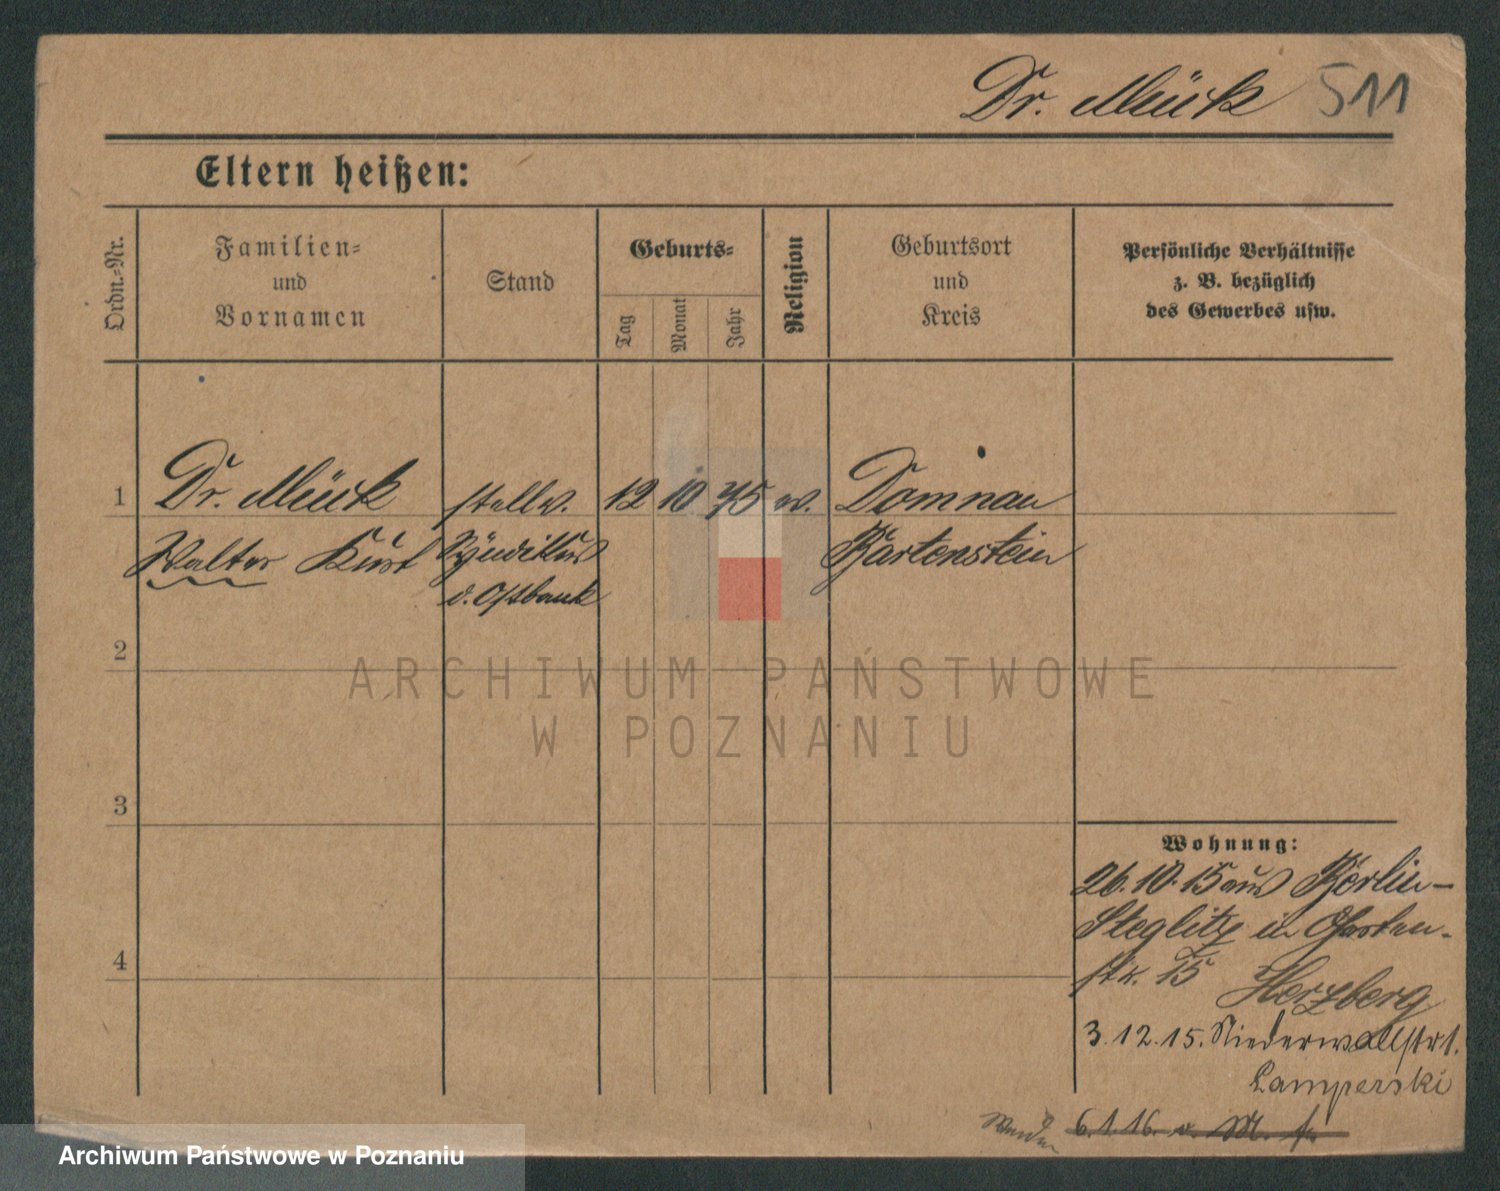 Dr. Mück 511
Eltern heißen:
Ordn.-Nr.
Familien-
und
Vornamen
Stand
Geburts-
Tag
Monat
Jahr
Religion
Geburtsort
und
Kreis
Persönliche Verhältnisse
z. B. bezüglich
des Gewerbes usw.
1 Dr. Mück stellv. 12 10 75 ev. Domnau
Walter Kurt Syndikus Bartenstein
d. Ostbank
2
3
4
Wohnung:
26.10.15 aus Berlin-
Steglitz in Garten-
str. 15 Herzberg
3.12.15. Niederwallstr 1.
Lamperski
6.1.16.
ARCHIWUM PAŃSTWOWE
W POZNANIU
Archiwum Państwowe w Poznaniu